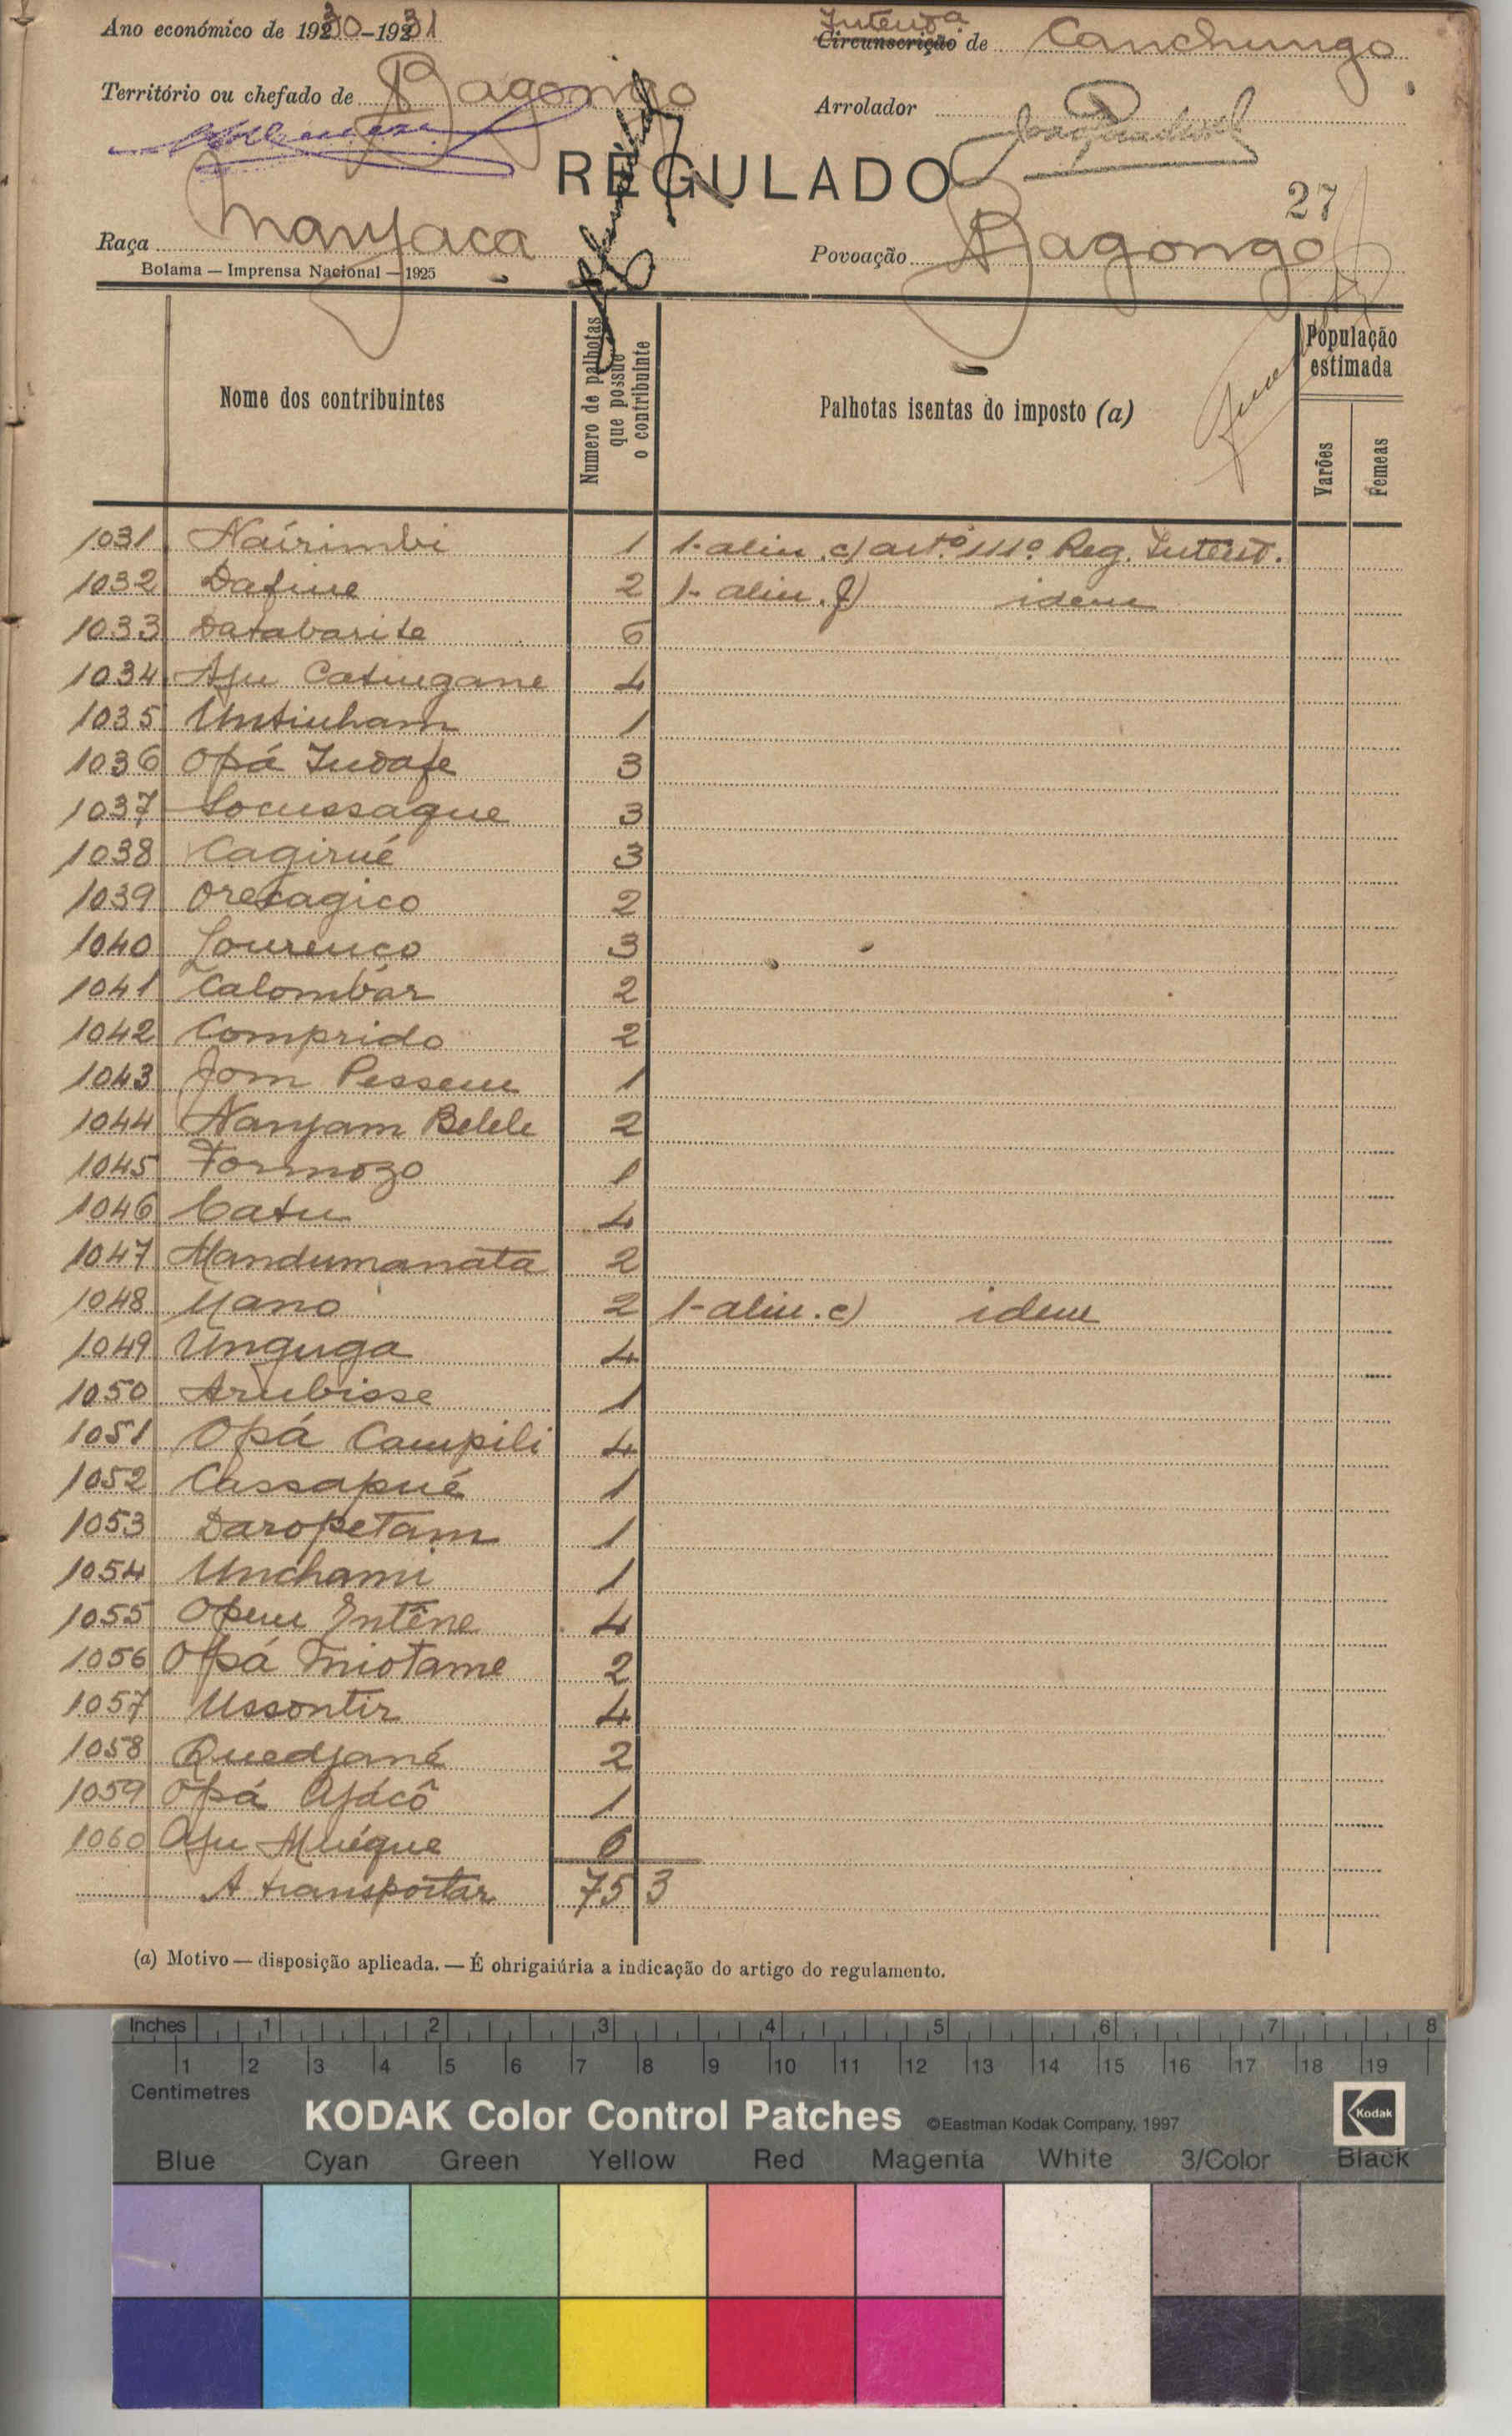 Ano económico de 1930-1931
Intenda
Circunscrição de Canchungo
Território ou chefado de Bagongo
Arrolador
REGULADO
27
Raça Manjaca
Povoação Bagongo
Bolama — Imprensa Nacional — 1925
Nome dos contribuintes
Numero de palhotas que possue o contribuinte
Palhotas isentas do imposto (a)
População estimada
Varões
Femeas
1031 Naírimbi 1 1-alin. c) artº 111º Reg. Intend.
1032 Dafine 2 1- alin. f) idem
1033 Databarite 6
1034 Aju Catingane 4
1035 Untinham 1
1036 Opá Indafe 3
1037 Locussaque 3
1038 Cagirué 3
1039 Orecagico 2
1040 Lourenço 3
1041 Calombar 2
1042 Comprido 2
1043 Jom Pessem 1
1044 Nanjam Belele 2
1045 Formozo 1
1046 Catu 4
1047 Mandumanata 2
1048 Mano 2 1-alin. c) idem
1049 Unguga 4
1050 Arubisse 1
1051 Opá Campili 4
1052 Cassapué 1
1053 Daropetam 1
1054 Unchami 1
1055 Opem Intêne 4
1056 Opá Miotame 2
1057 Ussontir 4
1058 Quedjané 2
1059 Opá Ajácô 1
1060 Aju Muéque 6
A transportar 75 3
(a) Motivo — disposição aplicada. — É obrigaiúria a indicação do artigo do regulamento.
Inches 1 2 3 4 5 6 7 8
1 2 3 4 5 6 7 8 9 10 11 12 13 14 15 16 17 18 19
Centimetres
KODAK Color Control Patches ©Eastman Kodak Company, 1997 Kodak
Blue Cyan Green Yellow Red Magenta White 3/Color Black